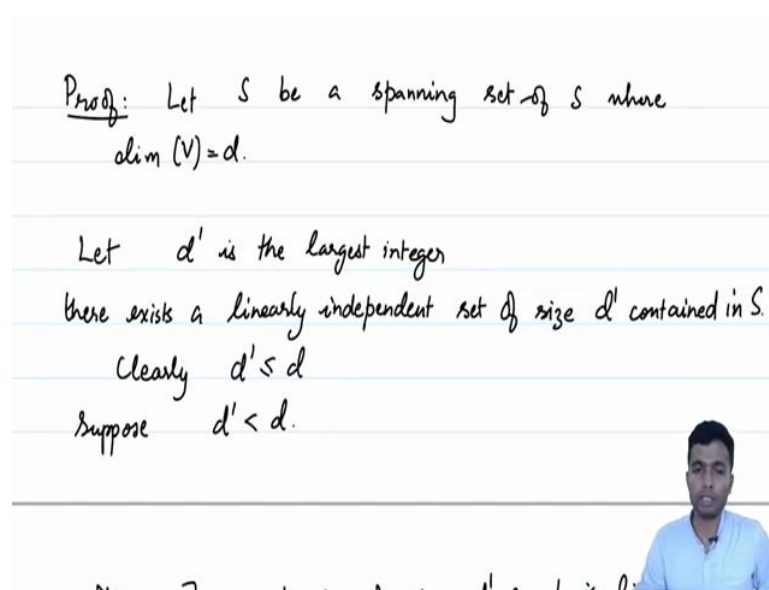 Proof: Let S be a spanning set of S where
dim (V) = d.
Let d' is the largest integer
there exists a linearly independent set of size d' contained in S.
Clearly d' ≤ d
Suppose d' < d.